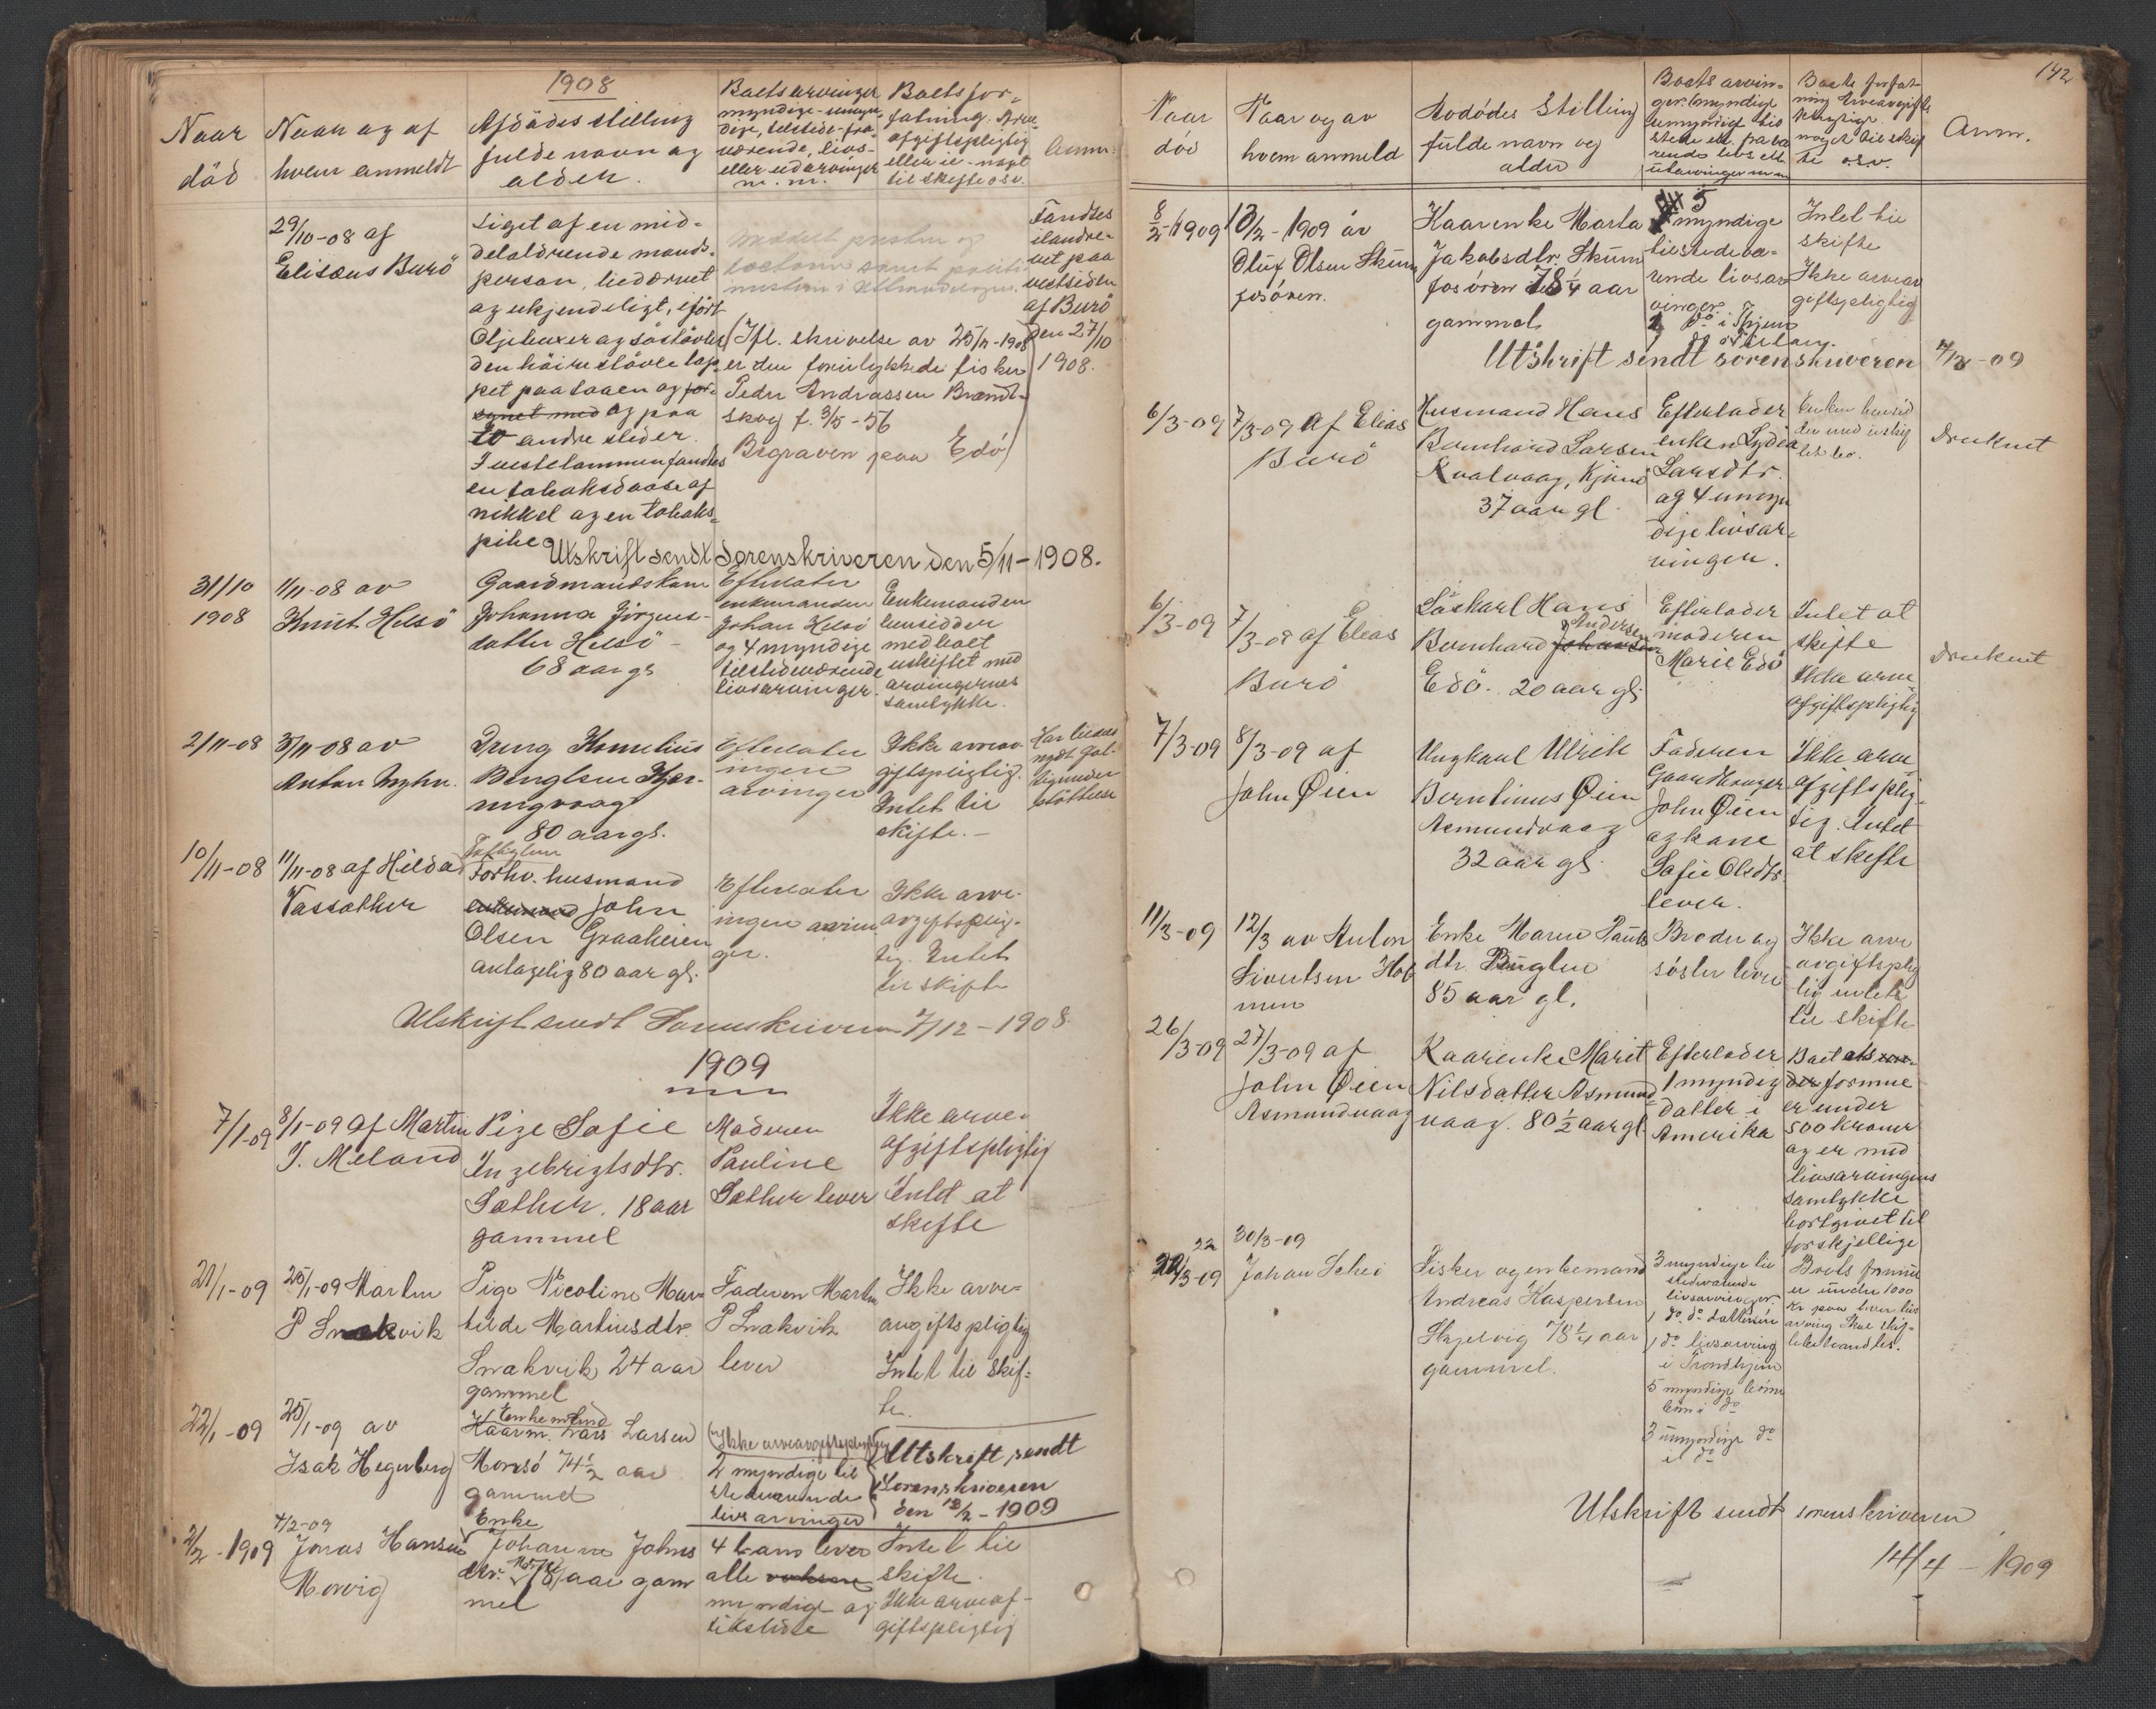 1908
Naar
död
Naar og af
hvem anmeldt
Afdödes stilling
fulde navn og
alder.
Boets arvinger
myndige - umyn-
dige, tilstede-fra-
værende, livs-
eller udarvinger
m. m.
Boets for-
fatning. Arve-
afgiftspligtig
eller ei - noget
til skifte osv.
Anm.
29/10-08 af
Elisæus Burö
Liget af en mid-
delaldrende mands-
person, liedærvet
og ukjendeligt, iført
Oljebuxer og söstövler
den höire stövle lap-
pet paa taaen og for-
synet med og paa
to andre steder.
I vestelommen fandtes
en tobaksdaase af
nikkel og en tobaks-
pibe
(Ifl. skrivelse av 25/11-1908
er den forulykkede fisker
Peder Andreassen Brandt-
skog f. 3/5-56
Begraven paa Edö)
Fandtes
ilanddre-
vet paa
vestsiden
af Burö
den 27/10
1908.
Utskrift sendt Sorenskriveren den 5/11-1908.
31/10
1908
1/11-08 av
Knut Helsö
Gaardmandskone
Johanna Jörgens-
datter Helsö -
68 aar gl
Efterlater
enkemanden
Johan Helsö
og 4 myndige
tilstedeværende
livsarvinger.
Enkemanden
hensidder
med boet
uskiftet med
arvingernes
samtykke.
2/11-08
3/11-08 av
Anton Myhr.
Dreng Kornelius
Bengtsen Kjör-
ningvaag
80 aar gl.
Efterlater
ingen
arvinger
Ikke arveav-
giftspligtig.
Intet til
skifte.-
Har tildels
nydt fat-
tigunder
stöttelse
10/11-08
11/11-08 af Hilda
Vassæther
Forhv. husmand
enkemand John
Olsen Graaheien
antagelig 80 aar gl.
Efterlater
ingen arvin
ger.
Ikke arve-
avgiftsplig-
tig. Intet
til skifte
Utskrift sendt Sorenskriveren 7/12-1908.
1909
7/1-09
8/1-09 af Martin
J. Meland
Pige Sofie
Ingebrigtsdtr.
Sæther. 18 aar
gammel
Moderen
Pauline
Sæther lever
Ikke arve-
afgiftspligtig
Intet at
skifte
21/1-09
25/1-09 Martin
P Snekvik
Pige Nicoline Mar-
tilde Martinsdtr.
Snekvik 24 aar
gammel
Faderen Martin
P Snekvik
lever
Ikke arve-
avgiftspligtig
Intet til skif-
te.
22/1-09
25/1-09 av
Isak Hegerberg
Enkemand
Kaarm. Lars Larsen
Morsö 74½ aar
gammel
(Ikke arveavgiftspligtig
2 myndige til
stedeværende
livsarvinger
Utskrift sendt
Sorenskriveren
den 12/2-1909
2/2-1909
4/2-09
Jonas Hansen
Morvig
Enke
Johanne Johns
dtr. 78 aar gam
mel
4 barn lever
alle voksne
myndige og
tilstede
Intet til
skifte.
Ikke arveaf-
giftspligtig
142
Naar
död
Naar og av
hvem anmeld
Avdödes Stilling
fulde navn og
alder
Boets arvin-
ger: myndige
umyndige til
stede ell. fravæ
rende livs ell
utarvinger m m
Boets forfat-
ning Arveavgifts
pligtige.
noget til skif
te o.s.v.
Anm.
8/2 1909
13/2-1909 av
Oluf Olsen Skum
fosören.
Kaarenke Marta
Jakobsdtr. Skum
fosören 78¼ aar
gammel
5
myndige
tilstedevæ-
rende livsar
vinger.
Intet til
skifte
Ikke arveav
giftspligtig
Utskrift sendt sorenskriveren
6/3-09
7/3-09 af Elias
Burö
Husmand Hans
Bernhard Larsen
Kvalvaag,
37 aar gl.
Efterlader
enken Lydia
Larsdtr.
og 4 umyn
dige livsar-
vinger.
Enken hensid
der med uskif
tet bo.
Druknet
6/3-09
7/3-09 af Elias
Burö
Löskarl Hans
Bernhard Johansen
Andersen
Edö. 20 aar gl.
Efterlader
moderen
Marie Edö
Intet at
skifte
Ikke arve
afgiftspligtig
Druknet
7/3-09
8/3-09 af
John Øien
Ungkarl Ulrik
Berntinus Øien
Asmundvaag
32 aar gl.
Faderen
Gaardbruger
John Øien
og kone
Sofie Olsdtr.
lever.
Ikke arve
afgiftsplig-
tig. Intet
at skifte
11/3-09
12/3 av Anton
Sivertsen Hol
men
Enke Maren Pauls
dtr. Buglen
85 aar gl.
Broder og
söster lever
Ikke arve
avgiftsplig
tig intet
til skifte
26/3-09
27/3-09 af
John Øien
Asmundvaag
Kaarenke Marit
Nilsdatter Asmund-
vaag. 80½ aar gl
Efterlader
1 myndig
datter i
Amerika
Boet ats un-
der formue
er under
500 kroner
og er med
livsarvingens
samtykke
bortgivet til
forskjellige
22/3-09
30/3-09
Johan Schei
Fisker og enkemand
Andreas Kaspersen
Skjelvig 78¼ aar
gammel.
3 myndige til
stedværende
livsarvinger.
1 do. do.
1 do livsarving
i Trondhjem
5 myndige
3 umyndige do
Boets formue
er under 1000
Kr paa hver livs
arving Skal skif-
tebehandles.
Utskrift sendt sorenskriveren
14/4-1909